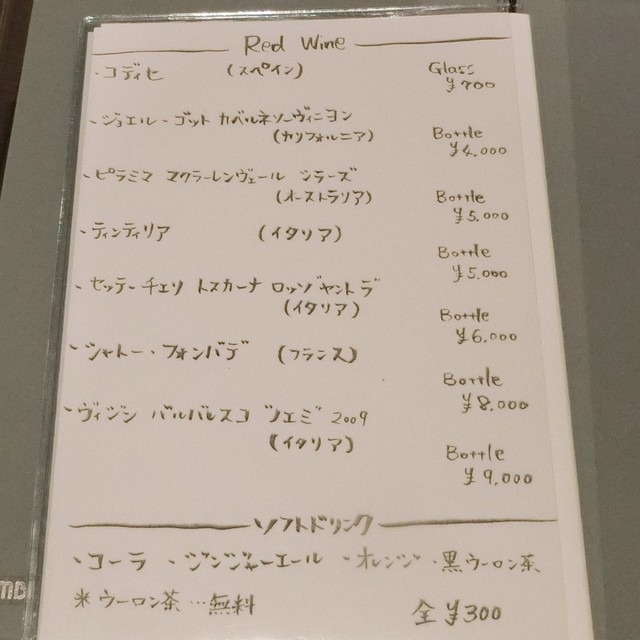 Red Wine
・コディセ (スペイン) Glass
¥700
・ジョエル・ゴット カベルネソーヴィニヨン
(カリフォルニア) Bottle
¥4,000
・ピラミマ マクラーレンヴェール シラーズ
(オーストラリア) Bottle
¥5,000
・ティンティリア (イタリア)
Bottle
¥5,000
・セッテ・チェリ トスカーナ ロッソ゛ヤントラ゛
(イタリア) Bottle
¥6,000
・シャトー・フォンバデ (フランス)
Bottle
¥8,000
・ヴィジン バルバレスコ ソ゛エミ゛ 2009
(イタリア) Bottle
¥9,000
ソフトドリンク
・コーラ ・ジンジャーエール ・オレンジ ・黒ウーロン茶
※ウーロン茶…無料 全¥300